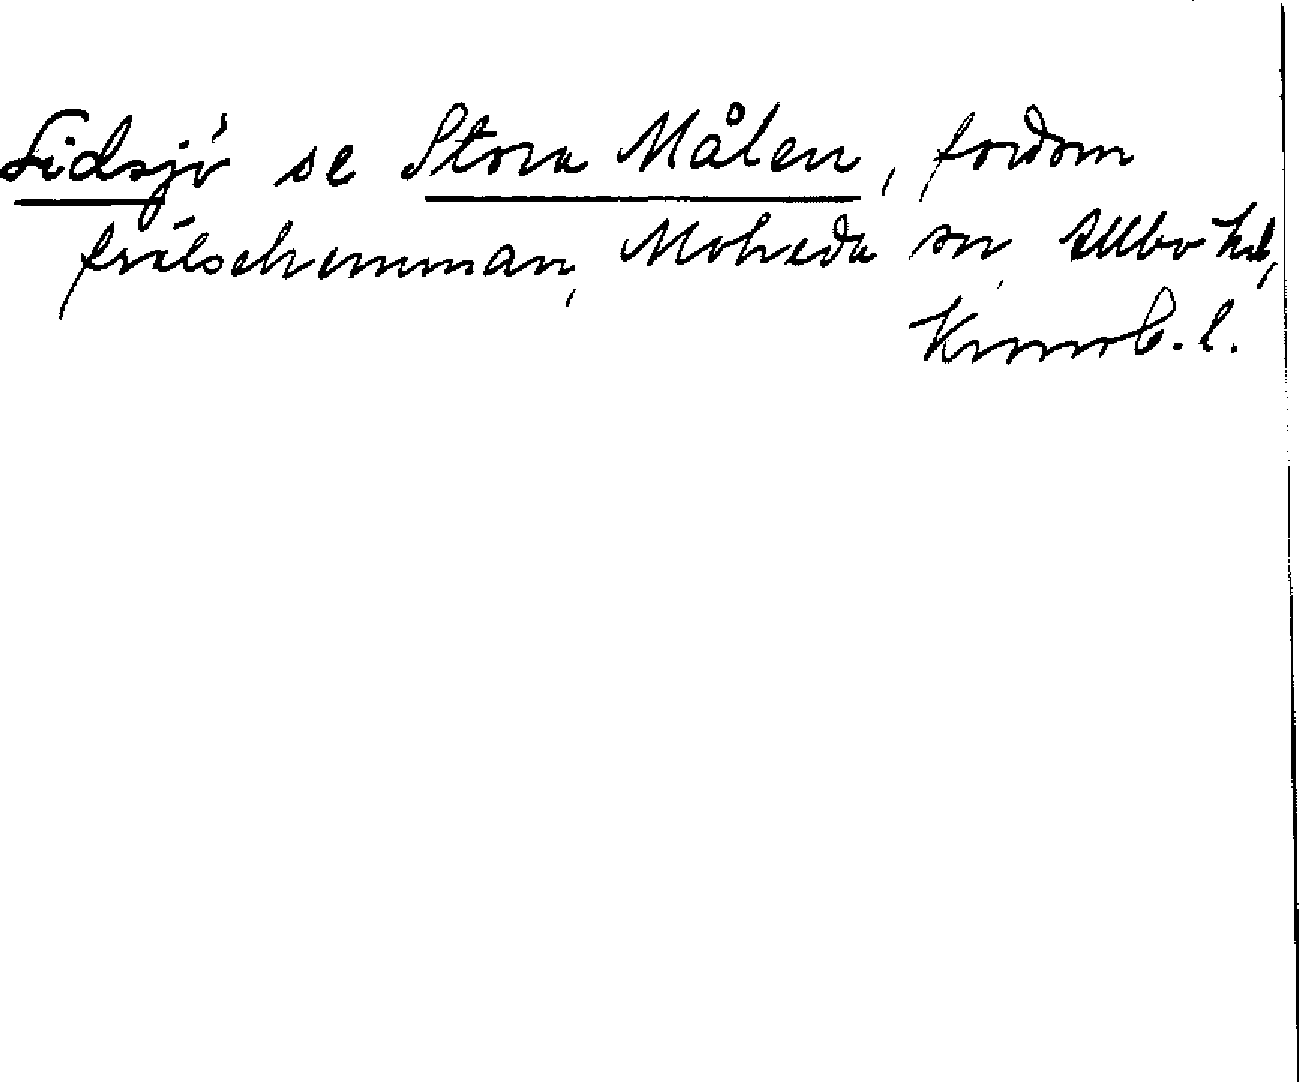 Lidsjö se Stora Målen, fordom
frälsehemman, Moheda sn, Allbo hd,
Kronob. l.